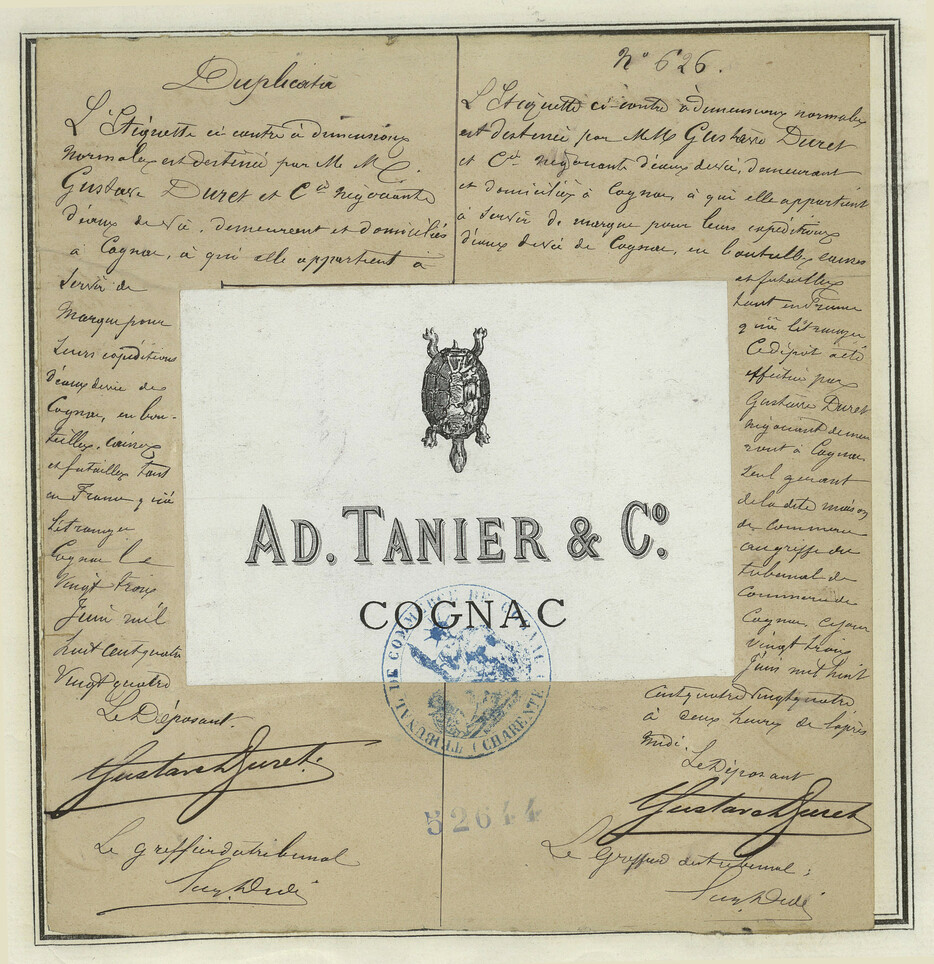 Duplicata
L'Etiquette ci contre à dimensions
normales est destinée par M M.
Gustave Duret et Cie négociants
d'eaux de vie, demeurant et domiciliés
à Cognac, à qui elle appartient à
servir de
marque pour
leurs expéditions
d'eaux de vie de
Cognac, en bou-
teilles, caisses
et futailles tant
en France qu'à
l'étranger
Cognac le
Vingt trois
Juin mil
huit cent quatre
Vingt quatre
Le Déposant
Gustave Duret
Le greffier du tribunal
No 626.
L'Etiquette ci contre à dimensions normales
est destinée par M.M. Gustave Duret
et Cie négociants d'eaux de vie, demeurant
et domiciliés à Cognac, à qui elle appartient
à servir de marque pour leurs expéditions
d'eaux de vie de Cognac, en bouteilles, caisses
et futailles
tant en France
qu'à l'étranger
Ce dépôt a été
effectué par
Gustave Duret
négociant demeu
rant à Cognac,
seul gérant
de la dite maison
de commerce
au greffe du
tribunal de
Commerce de
Cognac, ce jour
vingt trois
Juin mil huit
cent quatre vingt quatre
à deux heures de l'après
midi.
Le Déposant
Gustave Duret
Le Greffier du tribunal;
AD. TANIER & Co.
COGNAC
TRIBUNAL DE COMMERCE DE COGNAC (CHARENTE)
52644